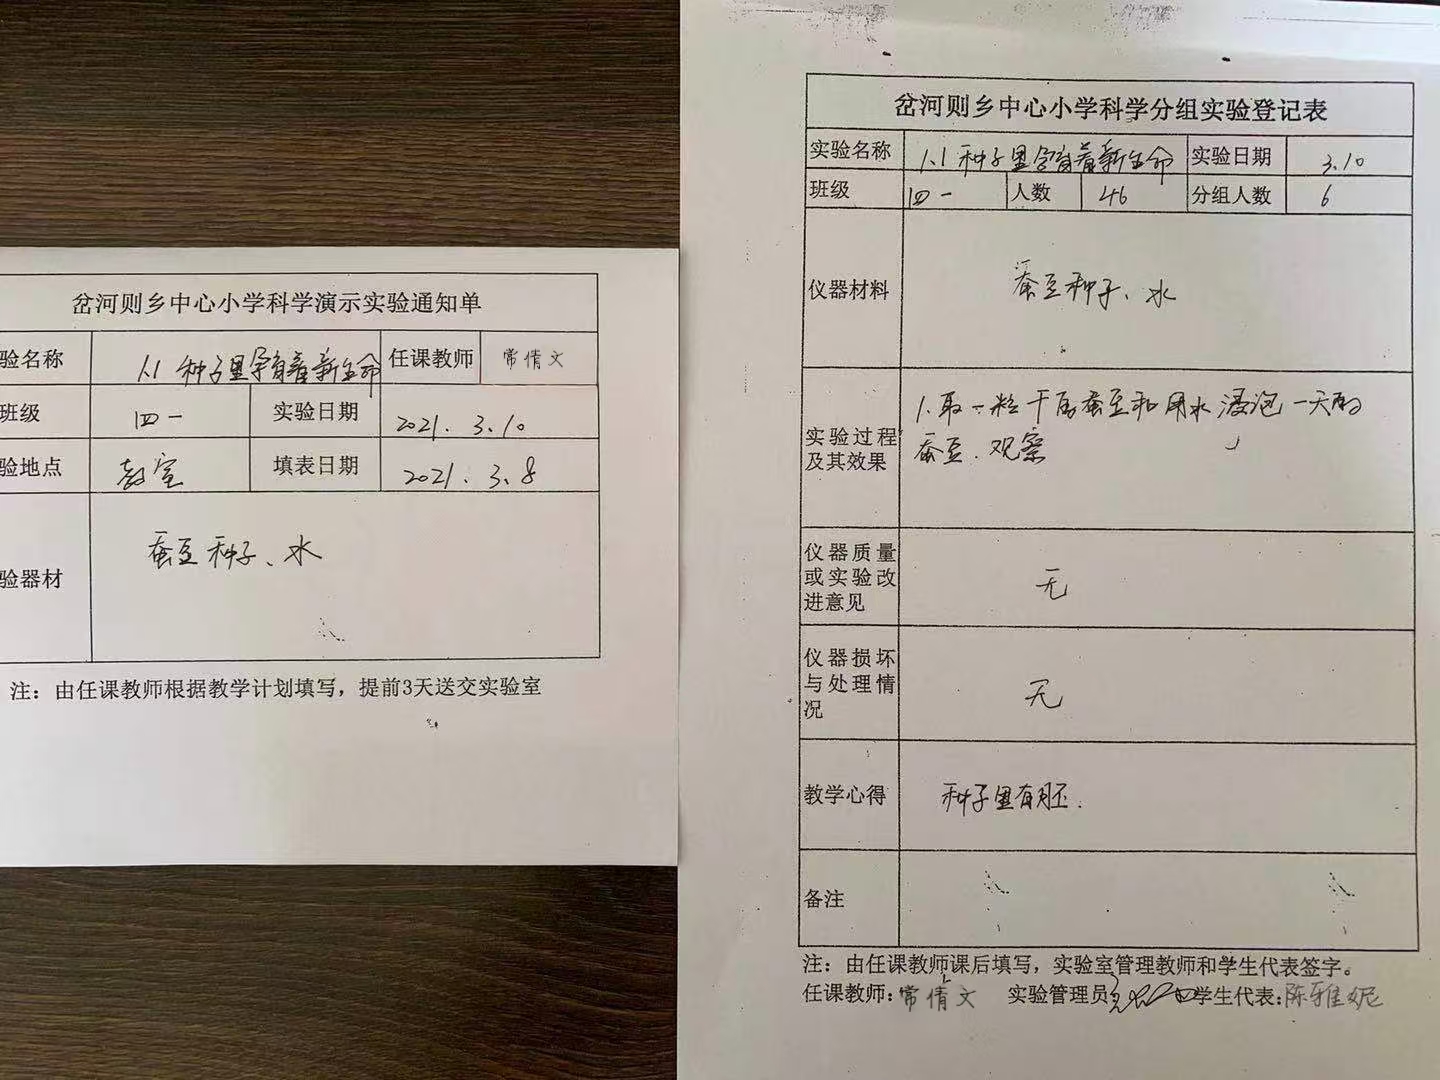 岔河则乡中心小学科学演示实验通知单
验名称 1.1 种子里孕育着新生命 任课教师 常倩文
班级 四一 实验日期 2021.3.10
验地点 教室 填表日期 2021.3.8
验器材 蚕豆种子、水
注：由任课教师根据教学计划填写，提前3天送交实验室
岔河则乡中心小学科学分组实验登记表
实验名称 1.1 种子里孕育着新生命 实验日期 3.10
班级 四一 人数 46 分组人数 6
仪器材料 蚕豆种子、水
实验过程
及其效果
1.取一粒干后蚕豆和用水浸泡一天的
蚕豆.观察
仪器质量
或实验改
进意见
无
仪器损坏
与处理情
况
无
教学心得 种子里有胚.
备注
注：由任课教师课后填写，实验室管理教师和学生代表签字。
任课教师：常倩文 实验管理员 学生代表：陈雅妮